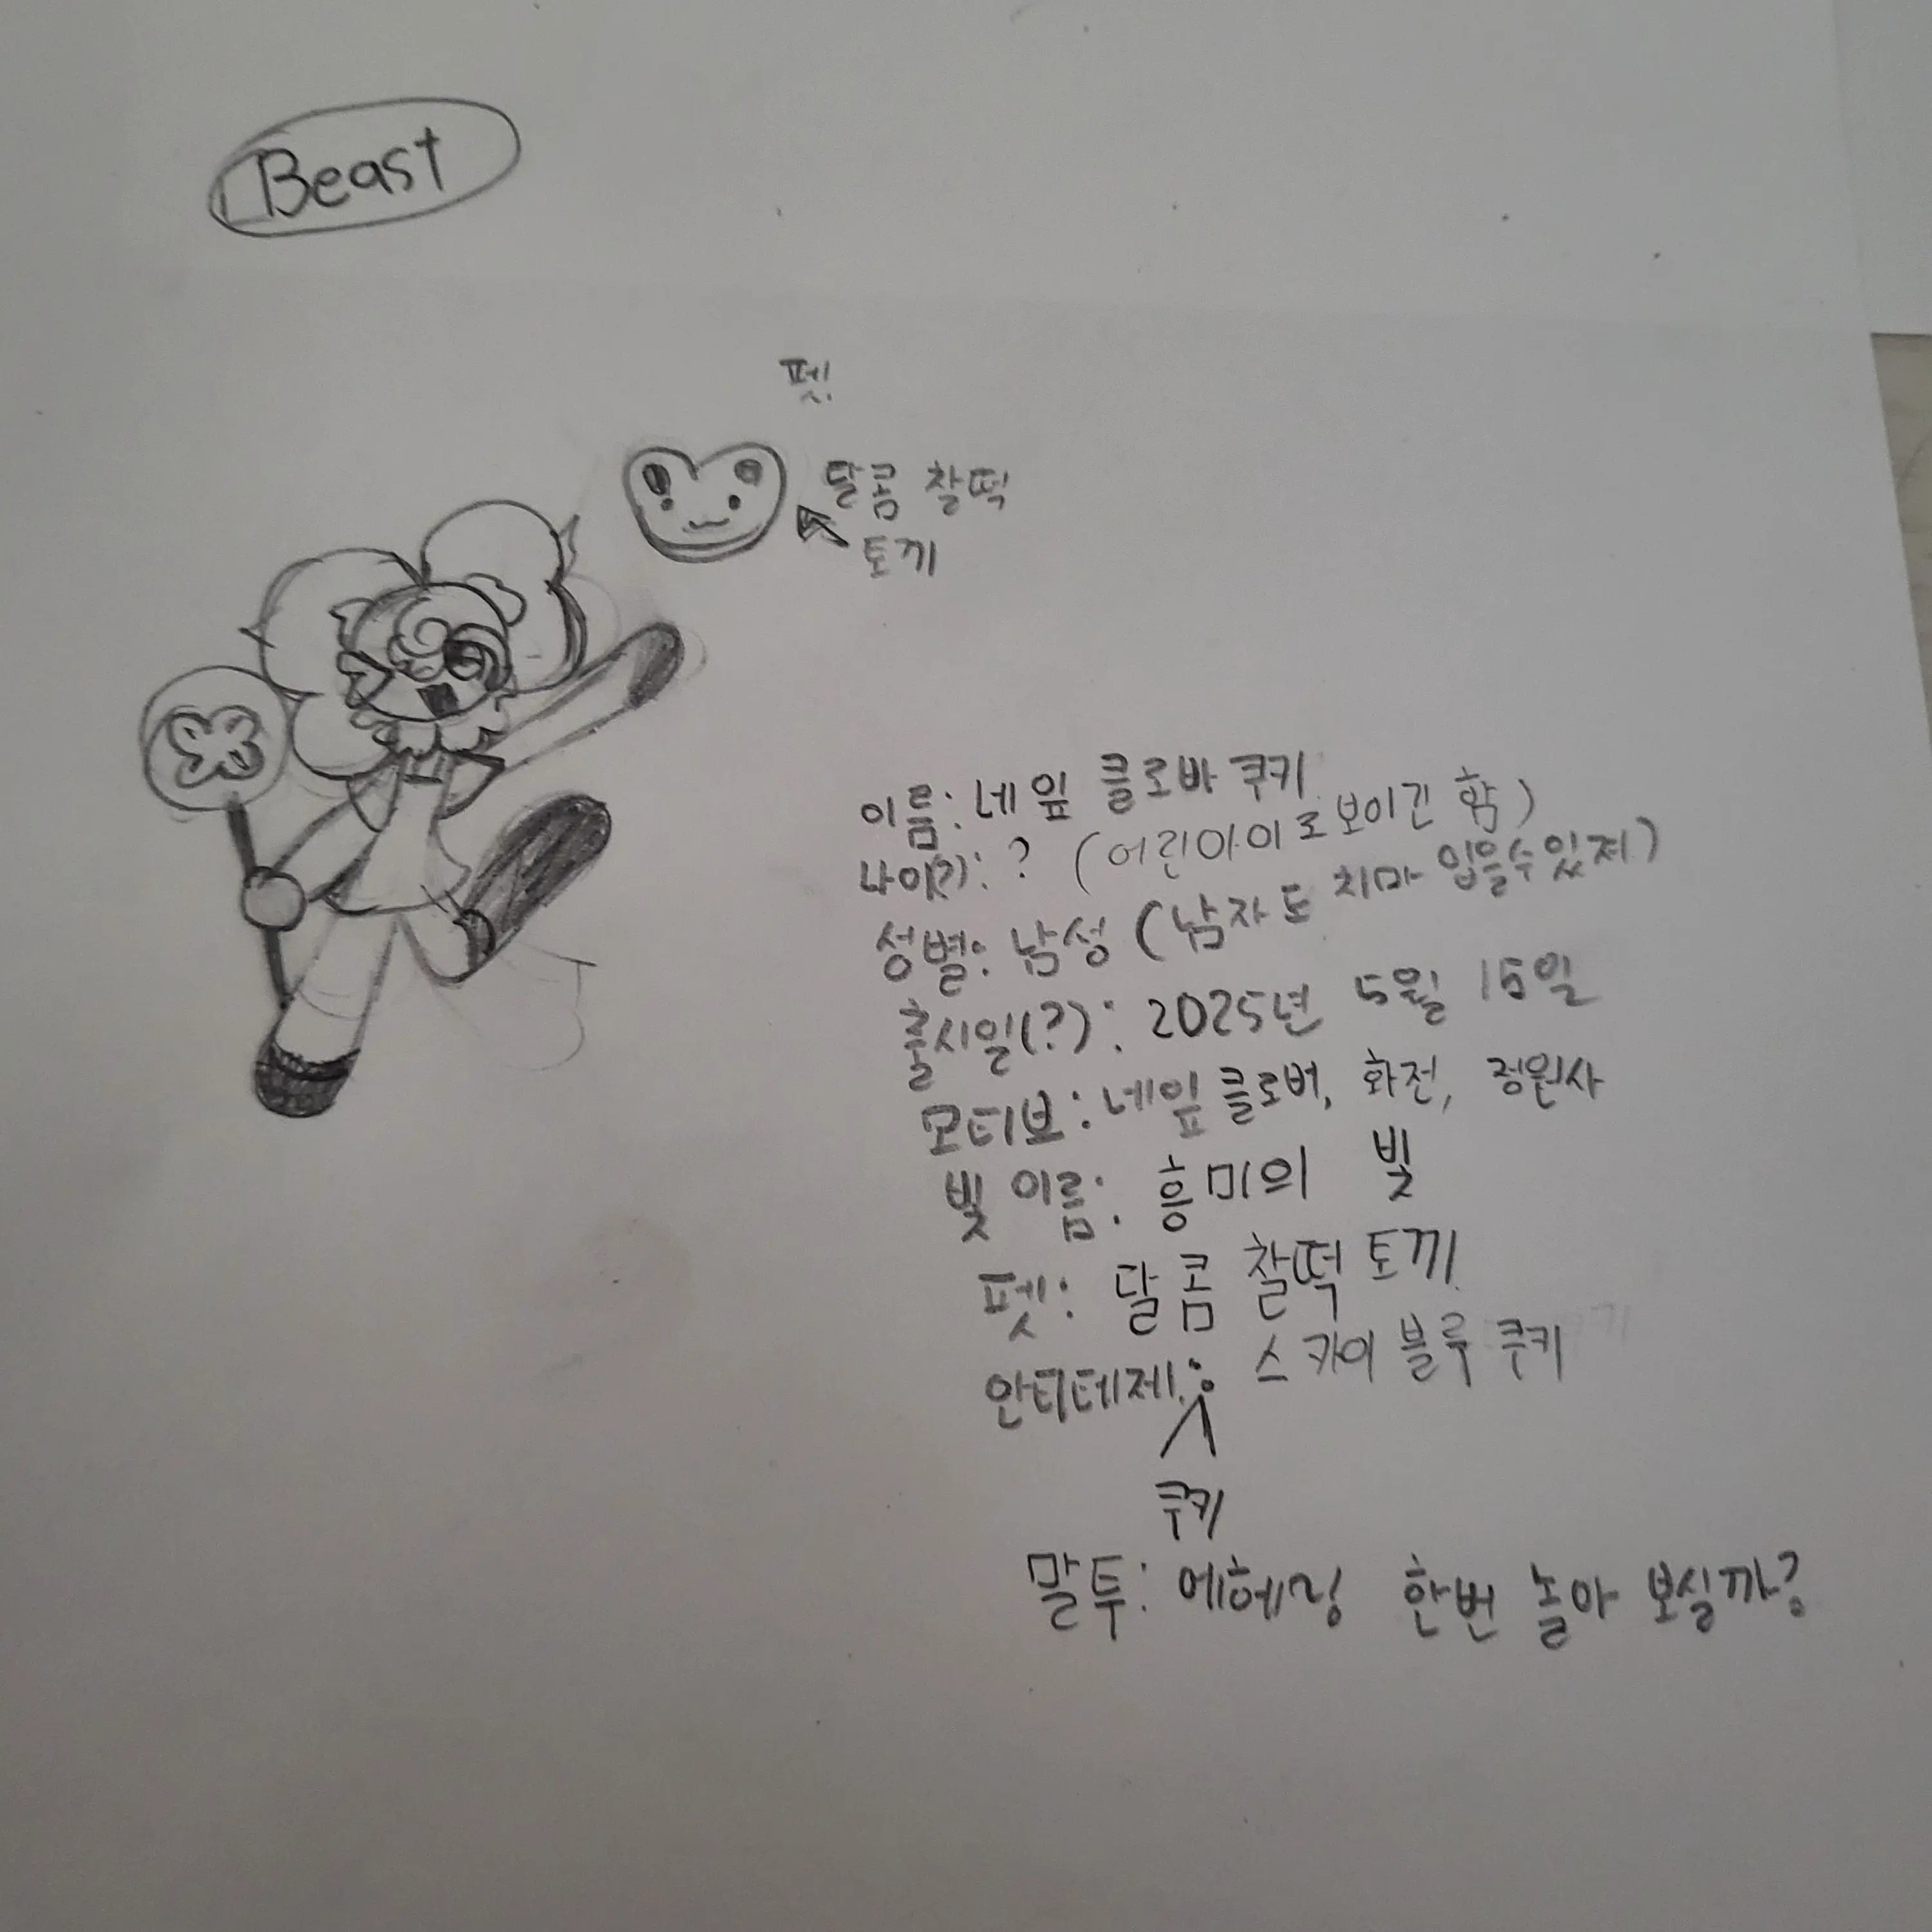 Beast
펫
달콤 찰떡
토끼
이름: 네잎 클로바 쿠키
나이(?): ? (어린아이로 보이긴 함)
성별: 남성 (남자도 치마 입을수있져)
출시일(?): 2025년 5월 15일
모티브: 네잎 클로버, 화전, 정원사
빛 이름: 흥미의 빛
펫: 달콤 찰떡 토끼
안티테제: 스카이 블루 쿠키
쿠키
말투: 에헤링 한번 놀아 보실까?